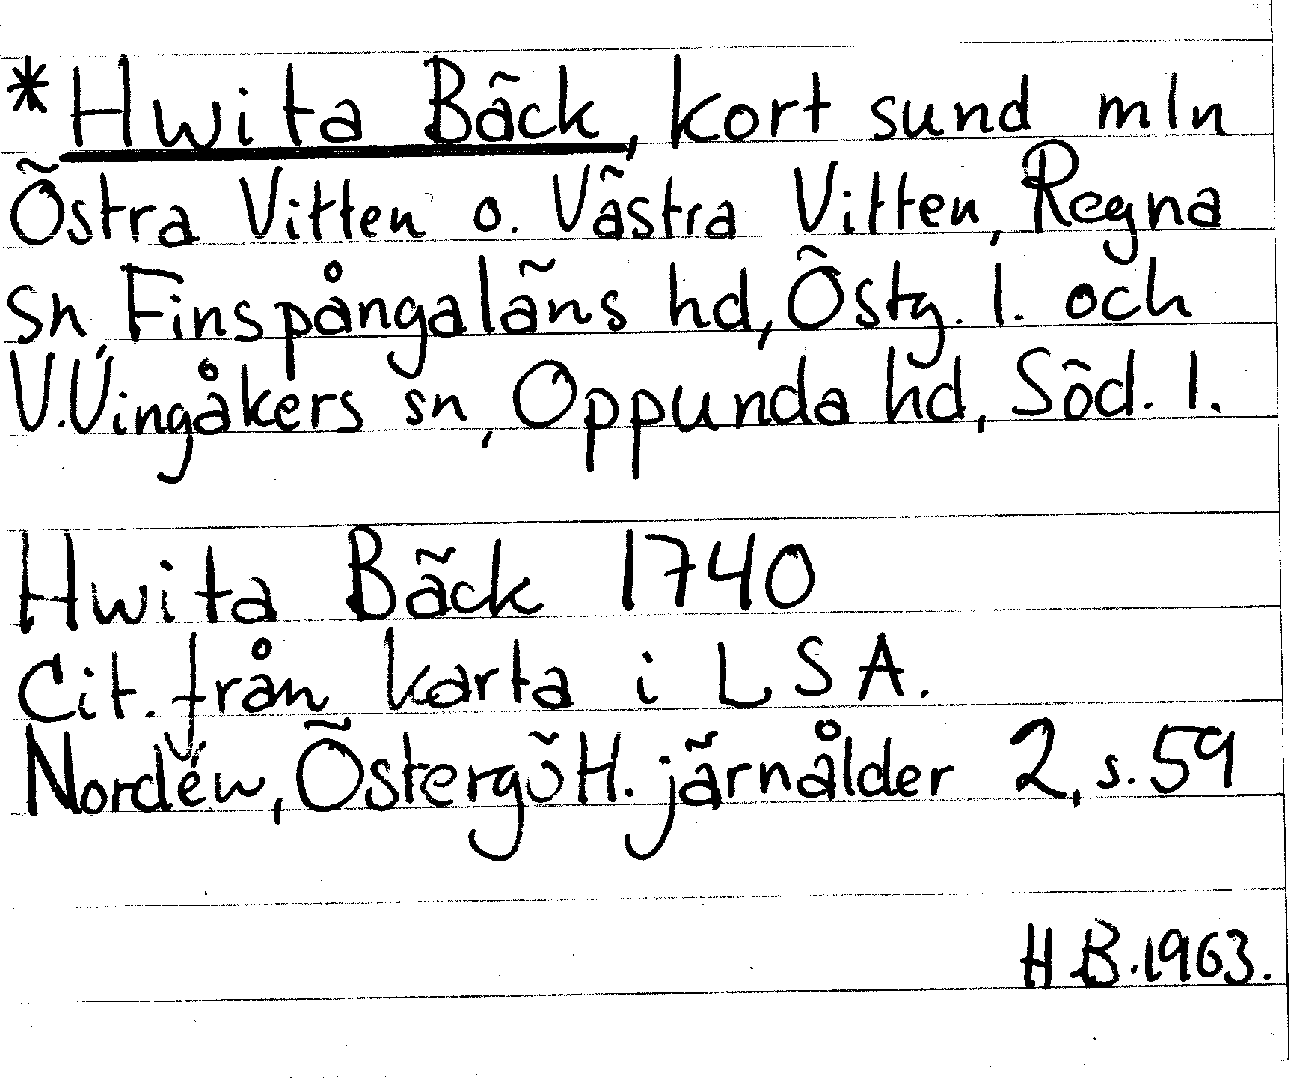 *Hwita Bäck, kort sund mln
Östra Vitten o. Västra Vitten, Regna
sn, Finspångaläns hd, Östg. l. och
V.Vingåkers sn, Oppunda hd, Söd. l.
Hwita Bäck 1740
Cit. från karta i LSA.
Nordén, Östergötl. järnålder 2, s. 59
H B. 1963.